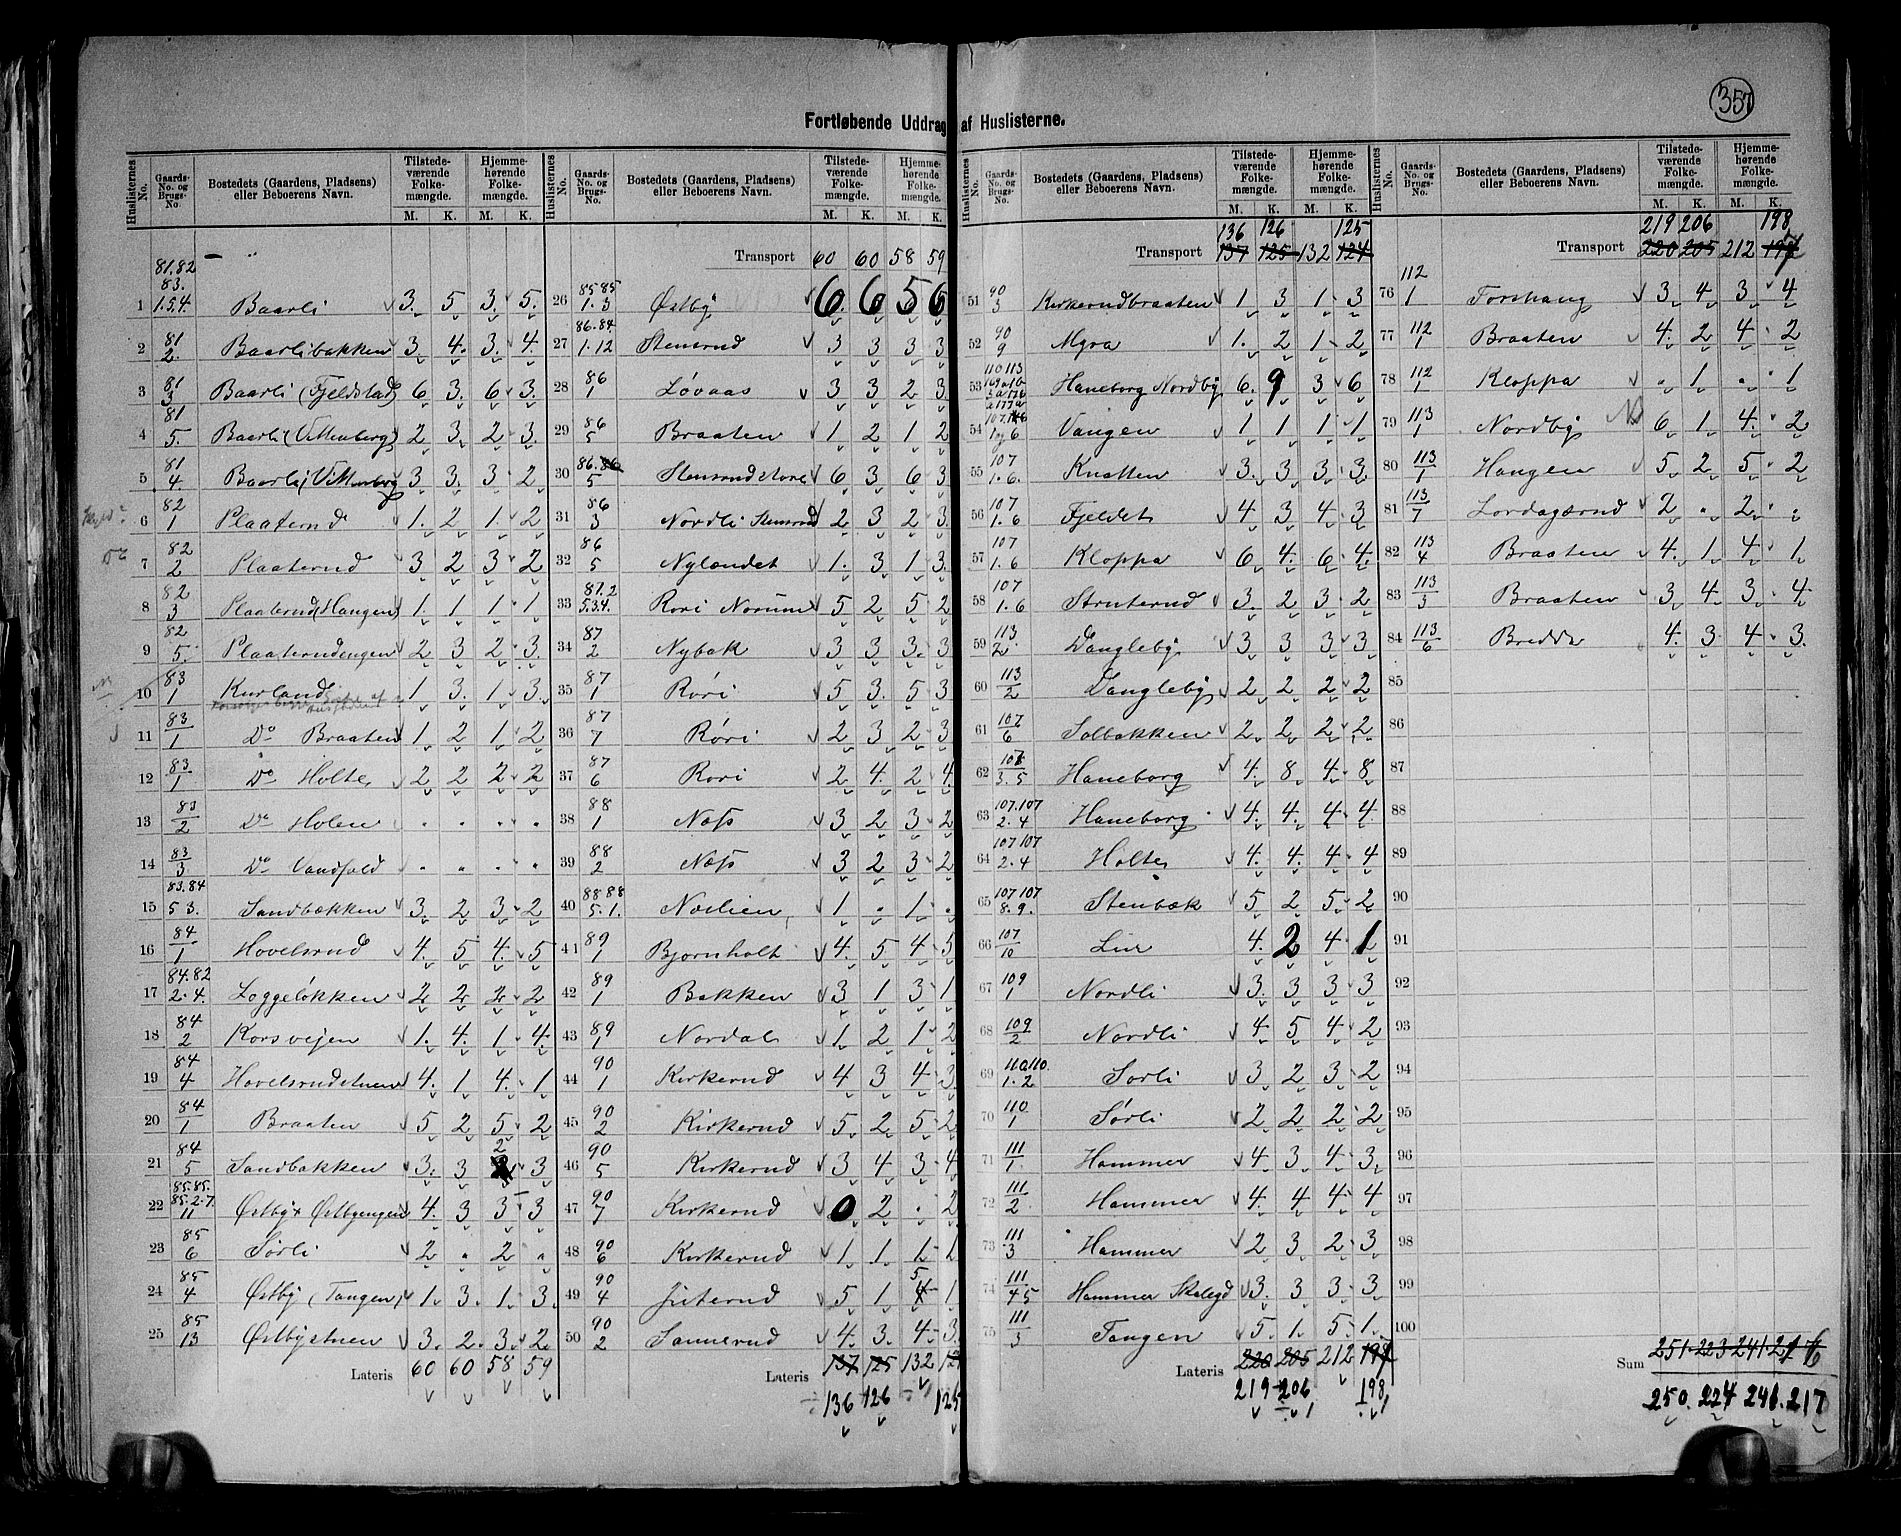 357
Fortløbende Uddrag af Huslisterne.
Huslisternes No. Gaards-No. og Brugs-No. Bostedets (Gaardens, Pladsens) eller Beboerens Navn. Tilstedeværende Folkemængde. M. K. Hjemmehørende Folkemængde. M. K.
1 81.82 83. 1.5.4. Baarli 3. 5 3. 5.
2 81 2. Baarlibakken 3 4. 3. 4.
3 81 3 Baarli (Fjeldstad) 6 3. 6 3.
4 81 5. Baarli (Vittenberg) 2 3. 2 3.
5 81 4 Baarli (Vittenberg 3 3. 3 2
6 82 1 Plaaterud 1. 2 1. 2
7 82 2 Plaaterud 3 2 3 2
8 82 3 Plaaterud (Haugen) 1. 1 1 1
9 82 5. Plaaterudengen 2 3 2 3.
10 83 1 Kurland 1 3. 1 3.
11 83 1 Do Braaten 1 2 1 2
12 83 1 Do Holte 2 2 2 2
13 83 2 Do Holen " " " "
14 83 3 Do Vandfald " " " "
15 83.84 5 3. Sandbækken 3. 2 3 2
16 84 1 Hovelsrud 4. 5 4. 5
17 84.82 2.4. Loggeløkken 2 2 2 2
18 84 2 Korsvejen 1. 4. 1 4.
19 84 4 Hovelsrudstuen 4. 1 4. 1
20 84 1 Braaten 5 2 5 2
21 84 5 Sandbakken 3. 3 2 3
22 85.85. 85.2.7. 11 Østby Østbyengen 4. 3 3 3
23 85 6 Sørli 2 " 2 "
24 85 4 Østby (Tangen) 1. 3. 1. 3.
25 85 13 Østbystuen 3. 2. 3. 2.
Lateris 60 60 58 59
Transport 60 60 58 59
26 85 85 1. 3 Østby 6. 6 5 6
27 86.84. 1.12 Stensrud 3 3 3 3
28 86 1 Løvaas 3 3 2 3
29 86 5 Braaten 1 2 1 2
30 86. 5 Stensrudstore 6 3 6 3
31 86 3 Nordli Stensrud 2 3 2 3.
32 86 5 Nylændet 1. 3 1 3.
33 87.2 5.3.4. Rori Norum 5 2 5 2
34 87 2 Nybak 3 3 3. 3
35 87 1 Røri 5 3. 5 3
36 87 7 Røri 2 3 2 3
37 87 6 Rori 2 4. 2 4.
38 88 1 Næss 3 2 3 2
39 88 2 Næss 3 2 3 2
40 88 88 5. 1. Næslien 1 . 1 .
41 89 1 Bjørnholt 4. 5 4 5
42 89 1 Bakken 3 1 3 1
43 89 1 Nordal 1. 2 1 2
44 90 1 Kirkerud 4 3 4 3
45 90 2 Kirkerud 5 2 5 2
46 90 5 Kirkerud 3 4 3 4
47 90 7 Kirkerud 0 2 . 2
48 90 6 Kirkerud 1 1 1 1
49 90 4 Juterud 5 1 5 1
50 90 2 Sannerud 4. 3. 4. 3.
Lateris 137 125 132
136 126 125
Huslisternes No. Gaards-No. og Brugs-No. Bostedets (Gaardens, Pladsens) eller Beboerens Navn. Tilstedeværende Folkemængde. M. K. Hjemmehørende Folkemængde. M. K.
136 126 125
Transport 137 125 132 124
51 90 3 Kirkerudbraaten 1 3 1 3
52 90 9 Myra 1. 2 1 2
53 110 113 Haneborg Nordby 6. 9 3 6
54 Vangen 1 1 1 1
55 107 1.6. Knatten 3. 3 3 3
56 107 1.6 Fjeldet 4 3 4 3
57 107 1.6 Kloppa 6 4. 6 4.
58 107 1.6 Struterud 3. 2 3 2
59 113 2 Dangleby 3 3 3 3
60 113 2 Dangleby 2 2 2 2
61 107 6 Solbakken 2 2 2 2
62 3.5 Haneborg 4. 8 4 8
63 107.107 2.4 Haneborg 4. 4. 4 4
64 107 107 2.4 Holte 4. 4. 4 4
65 107 107 8.9. Stenbæk 5 2 5 2
66 107 10 Lier 4. 2 4 1
67 109 1 Nordli 3. 3 3 3
68 109 2 Nordli 4 5 4 2
69 110 110. 1.2 Sorli 3 2 3 2
70 110 1 Sørli 2 2 2 2
71 111 1. Hammer 4 3 4 3.
72 111 2 Hammer 4. 4 4 4
73 111 3 Hammer 2 3 2 3
74 111 45 Hammer 3. 3 3. 3
75 111 3 Tangen 5. 1. 5 1.
Lateris 220 205 212 197
219 206 198
219 206 198
Transport 220 205 212 197
76 112 1 Forshaug 3 4 3 4
77 112 1 Braaten 4. 2 4 2
78 112 1 Kloppa " 1 " 1
79 113 1 Nordby 6 1 4. 2
80 113 1 Haugen 5. 2 5 2
81 113 7 Lordagsrud 2 " 2 "
82 113 4 Braaten 4. 1 4 1.
83 113 3 Braaten 3 4. 3 4.
84 113 6 Bredde 4. 3 4 3.
85
86
87
88
89
90
91
92
93
94
95
96
97
98
99
100
Sum 251. 223 241. 216
250. 224 241. 217